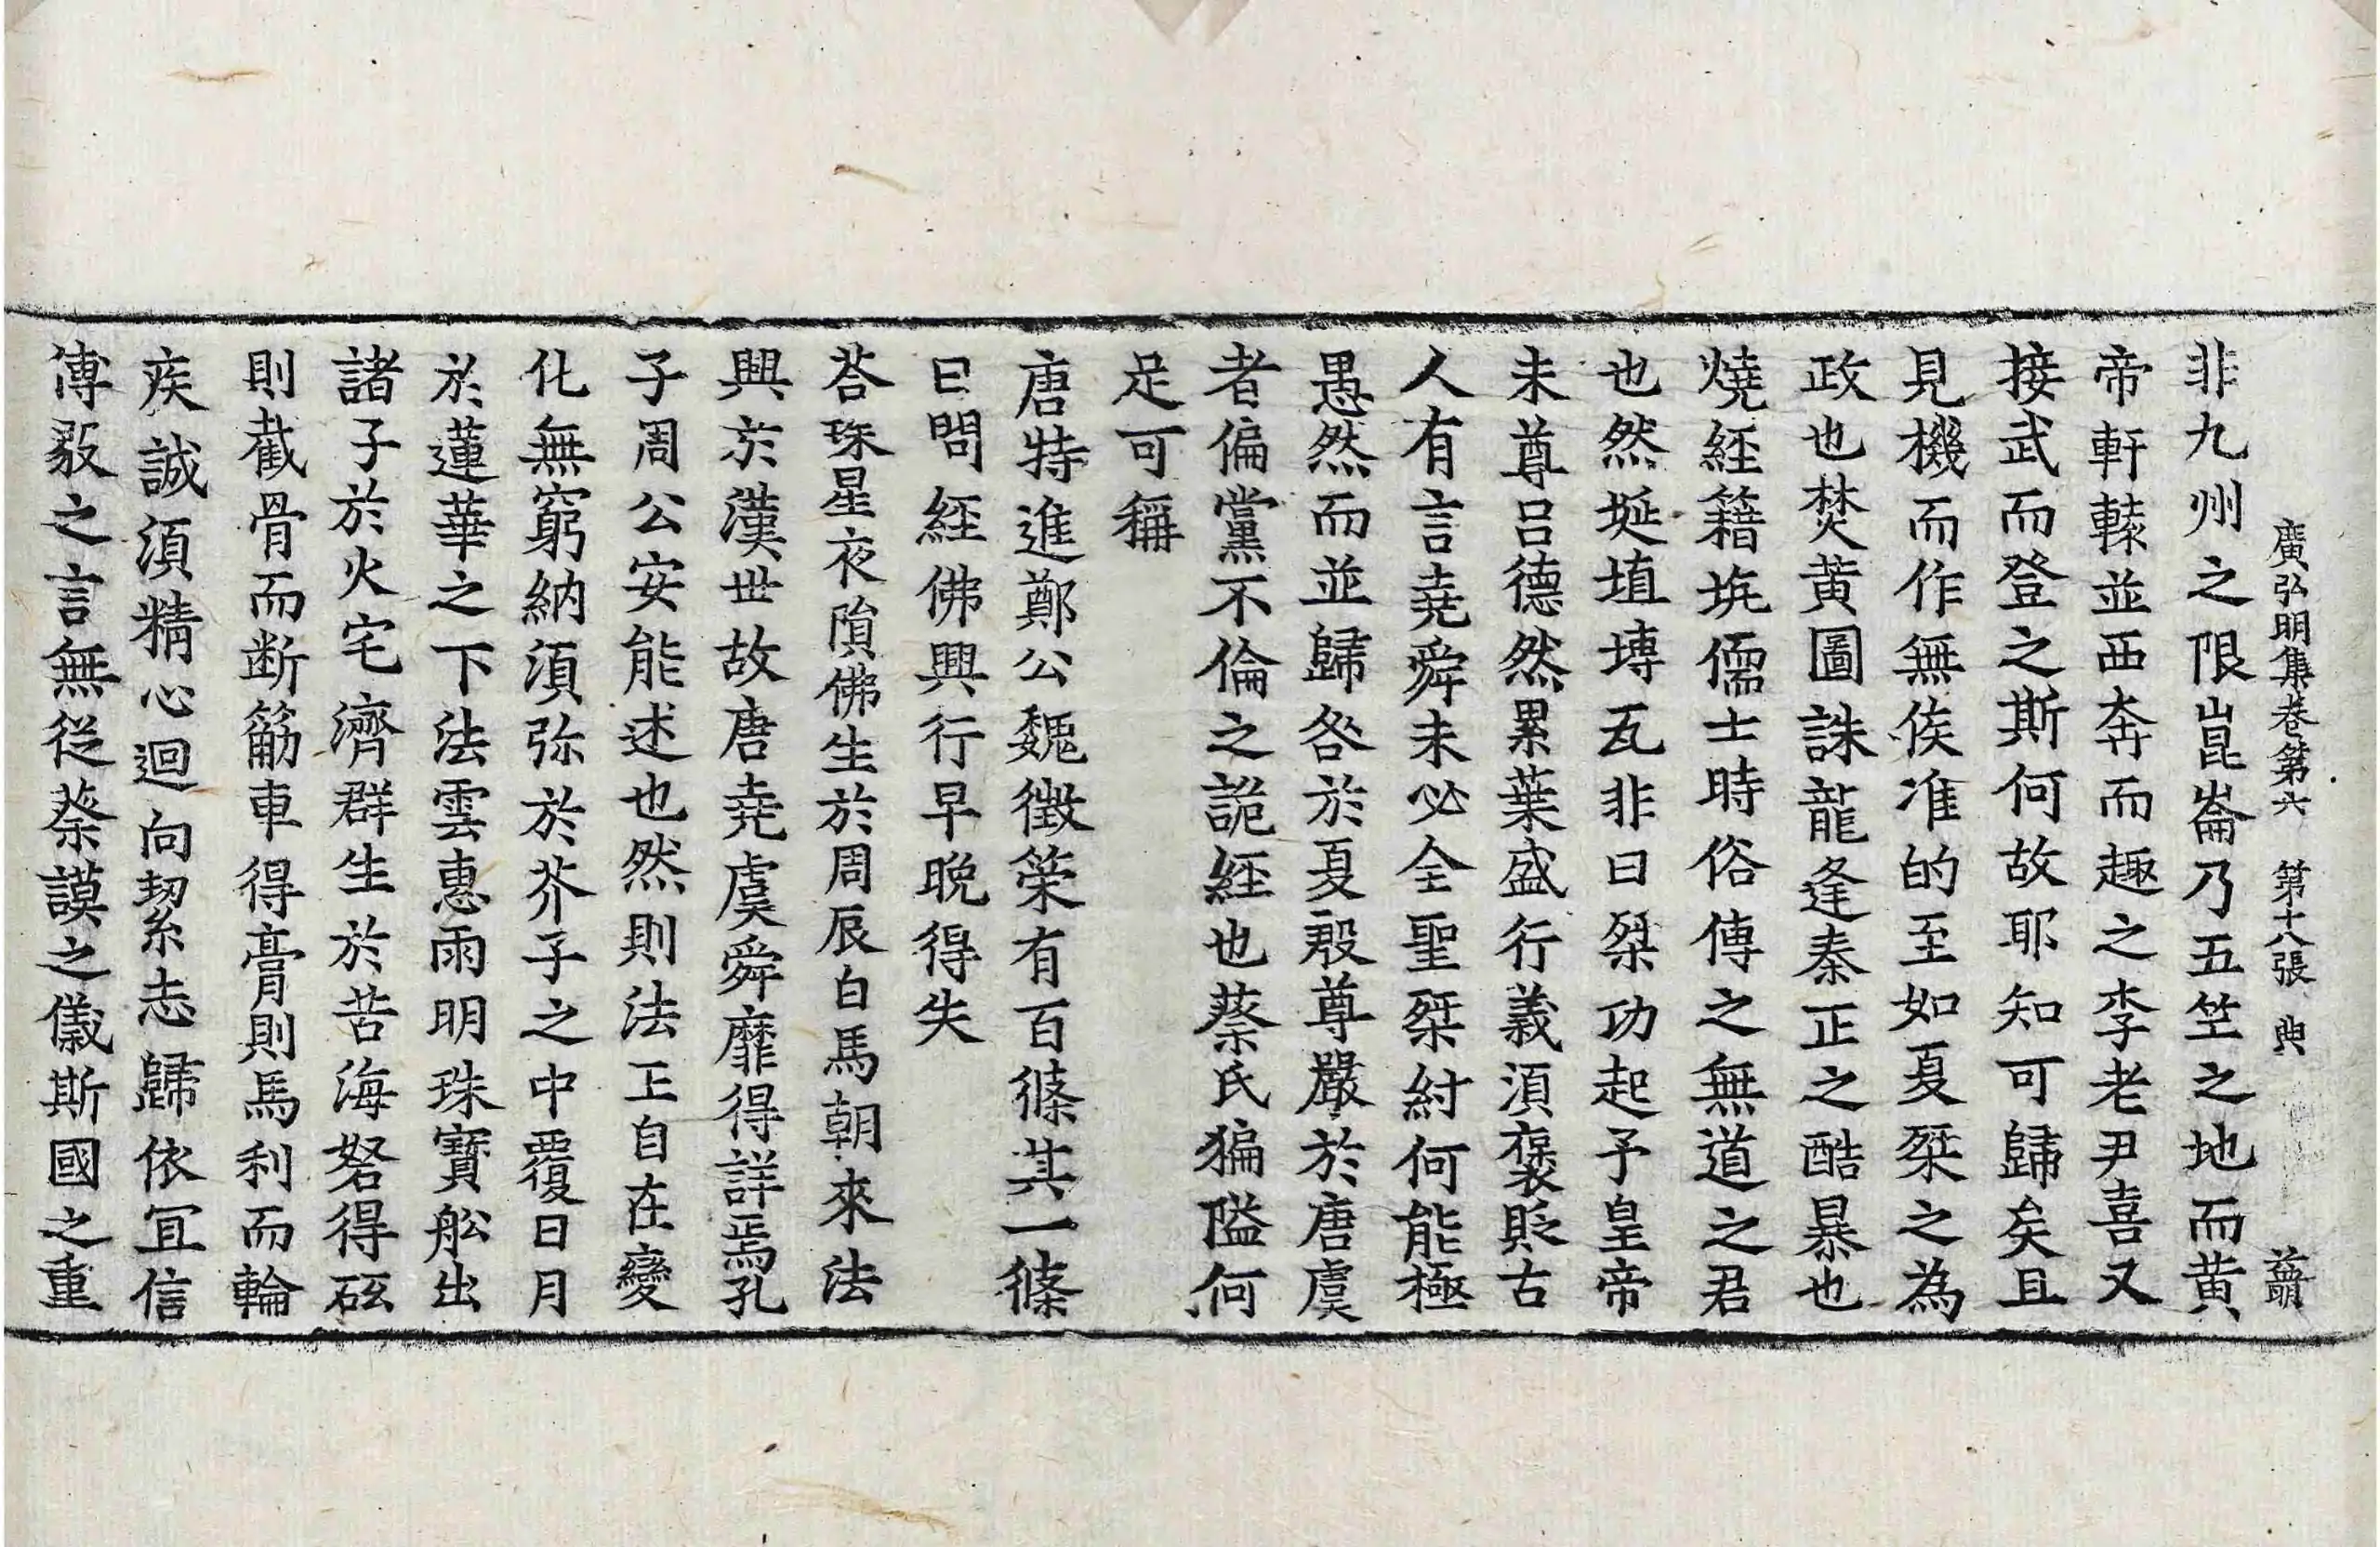 廣弘明集卷第六 第十八張 典
非九州之限崑崙乃五竺之地而黄
帝軒轅並西奔而趣之李老尹喜又
接武而登之斯何故耶知可歸矣且
見機而作無俟准的至如夏桀之為
政也焚黄圖誅龍逄秦正之酷暴也
燒經籍坑儒士時俗傳之無道之君
也然埏埴塼瓦非曰桀功起予皇帝
未尊呂德然累葉盛行義須褒貶古
人有言堯舜未必全聖桀紂何能極
愚然而並歸咎於夏殷尊嚴於唐虞
者偏黨不倫之詭經也蔡氏猵隘何
足可稱
唐特進鄭公魏徵策有百條其一條
曰問經佛興行早晚得失
荅珠星夜隕佛生於周辰白馬朝來法
興於漢世故唐堯虞舜靡得詳焉孔
子周公安能述也然則法王自在變
化無窮納須弥於芥子之中覆日月
於蓮華之下法雲惠雨明珠寶舩出
諸子於火宅濟群生於苦海砮得砥
則截骨而断筋車得膏則馬利而輪
疾誠須精心迴向絜志歸依冝信
傅毅之言無從蔡謨之儀斯國之重